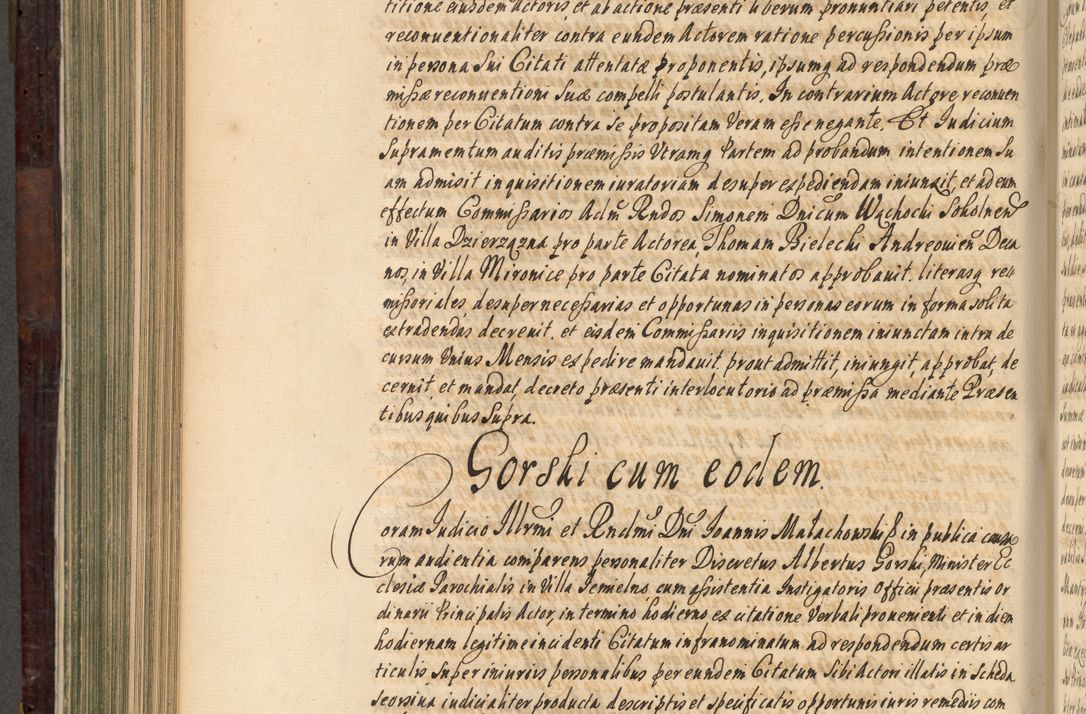 titione eiusdem Actoris, et ab actione præsenti liberum pronuntiari petentis, et
reconuentionaliter contra eundem Actorem ratione percussionis per ipsum
in persona Sui Citati attentatæ proponentis, ipsumq ad respondendum præ
missæ reconuentioni Suæ compelli postulantis. In contrarium Actore reconuen
tionem per Citatum contra se propositam Veram esse negante. Et Iudicium
Supramentum auditis præmissis Utramq Partem ad probandum intentionem Su
am admisit inquisitionem iuratoriam desuper expediendam iniunxit, et ad eum
effectum Commissarios Adm Rndos Simonem Dnicum Wąchocki Sokolnens
in Villa Dzierzązna pro parte Actorea, Thomam Bielecki Andreouien Deca
nos, in Villa Mironice pro parte Citata nominatos approbauit. literasq re
missoriales desuper necessarias et opportunas in personas eorum in forma solita
extradendas decreuit. et eisdem Commissariis inquisitionem iniunctam intra de
cursum Unius Mensis expedire mandauit. prout admittit, iniungit, approbat, de
cernit, et mandat, decreto præsenti interlocutorio ad præmissa mediante Præsen
tibus quibus Supra.
Gorski cum eodem.
Coram Iudicio Illrmi et Rndmi Dni Ioannis Małachowski E in publica causa
rum audientia comparens personaliter Discretus Albertus Gorski, Minister Ec
clesiæ Parochialis in Villa Iemielno, cum assistentia Instigatoris Officii præsentis or
dinarii Principalis Actor, in termino hodierno ex citatione Verbali proueniente et in diem
hodiernam legitime incidenti Citatum infranominatum ad respondendum certis ar
ticulis, super iniuriis personalibus per eundem Citatum Sibi Actori illatis in Scheda
seorsiua iudicialiter producta descriptis et specificatis opportunis iuris remediis com